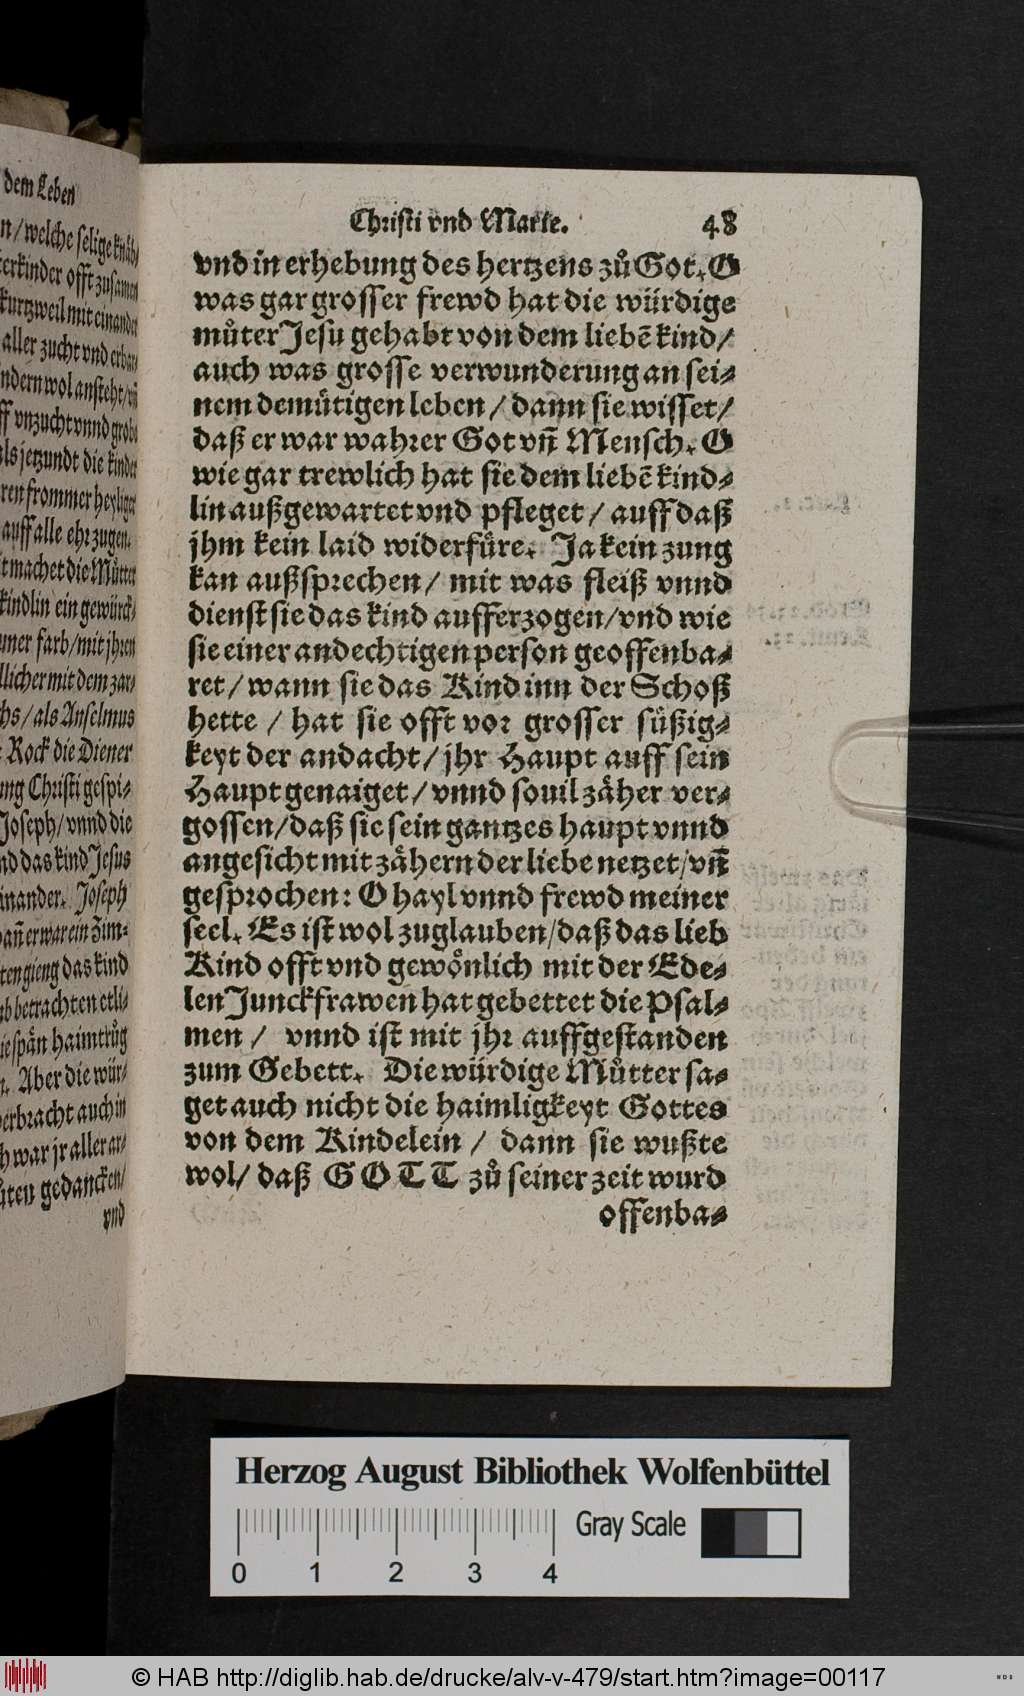 dem Leben
n/welche selige knäb/
terkinder offt zusamen
kurtzweil mit einander
aller zucht vnd erbar/
ndern wol ansteht/vñ
ff vnzucht vnnd grobe
als jetzundt die kinder
ren frommer heyliger
auff alle ehr zugen.
t machet die Můtter
kindlin ein gewürck⸗
uner farb/mit jhren
llicher mit dem zar⸗
chs/als Anselmus
Rock die Diener
ung Christi gespi⸗
Joseph/vnnd die
nd das kind Jesus
inander. Joseph
dañ er war ein Zim⸗
ten gieng das kind
ab betrachten etli⸗
ie spän haimtrůg
n. Aber die wür⸗
verbracht auch in
h war jr aller ar⸗
ůten gedancken/
vnd
Christi vnd Marie. 48
vnd in erhebung des hertzens zů Got. O
was gar grosser frewd hat die würdige
můter Jesu gehabt von dem liebẽ kind/
auch was grosse verwunderung an sei⸗
nem demůtigen leben/ dann sie wisset/
daß er war wahrer Got vñ Mensch. O
wie gar trewlich hat sie dem liebẽ kind⸗
lin außgewartet vnd pfleget/ auff daß
jhm kein laid widerfůre. Ja kein zung
kan außsprechen/ mit was fleiß vnnd
dienst sie das kind aufferzogen/vnd wie
sie einer andechtigen person geoffenba⸗
ret/ wann sie das Kind inn der Schoß
hette / hat sie offt vor grosser sůßig⸗
keyt der andacht/ jhr Haupt auff sein
Haupt genaiget/ vnnd souil zäher ver⸗
gossen/daß sie sein gantzes haupt vnnd
angesicht mit zähern der liebe netzet/vñ
gesprochen: O hayl vnnd frewd meiner
seel. Es ist wol zuglauben/daß das lieb
Kind offt vnd gewönlich mit der Ede⸗
len Junckfrawen hat gebettet die Psal⸗
men / vnnd ist mit jhr auffgestanden
zum Gebett. Die würdige Můtter sa⸗
get auch nicht die haimligkeyt Gottes
von dem Kindelein / dann sie wußte
wol/ daß GOTT zů seiner zeit wurd
offenba⸗
Herzog August Bibliothek Wolfenbüttel
Gray Scale
0 1 2 3 4
© HAB http://diglib.hab.de/drucke/alv-v-479/start.htm?image=00117